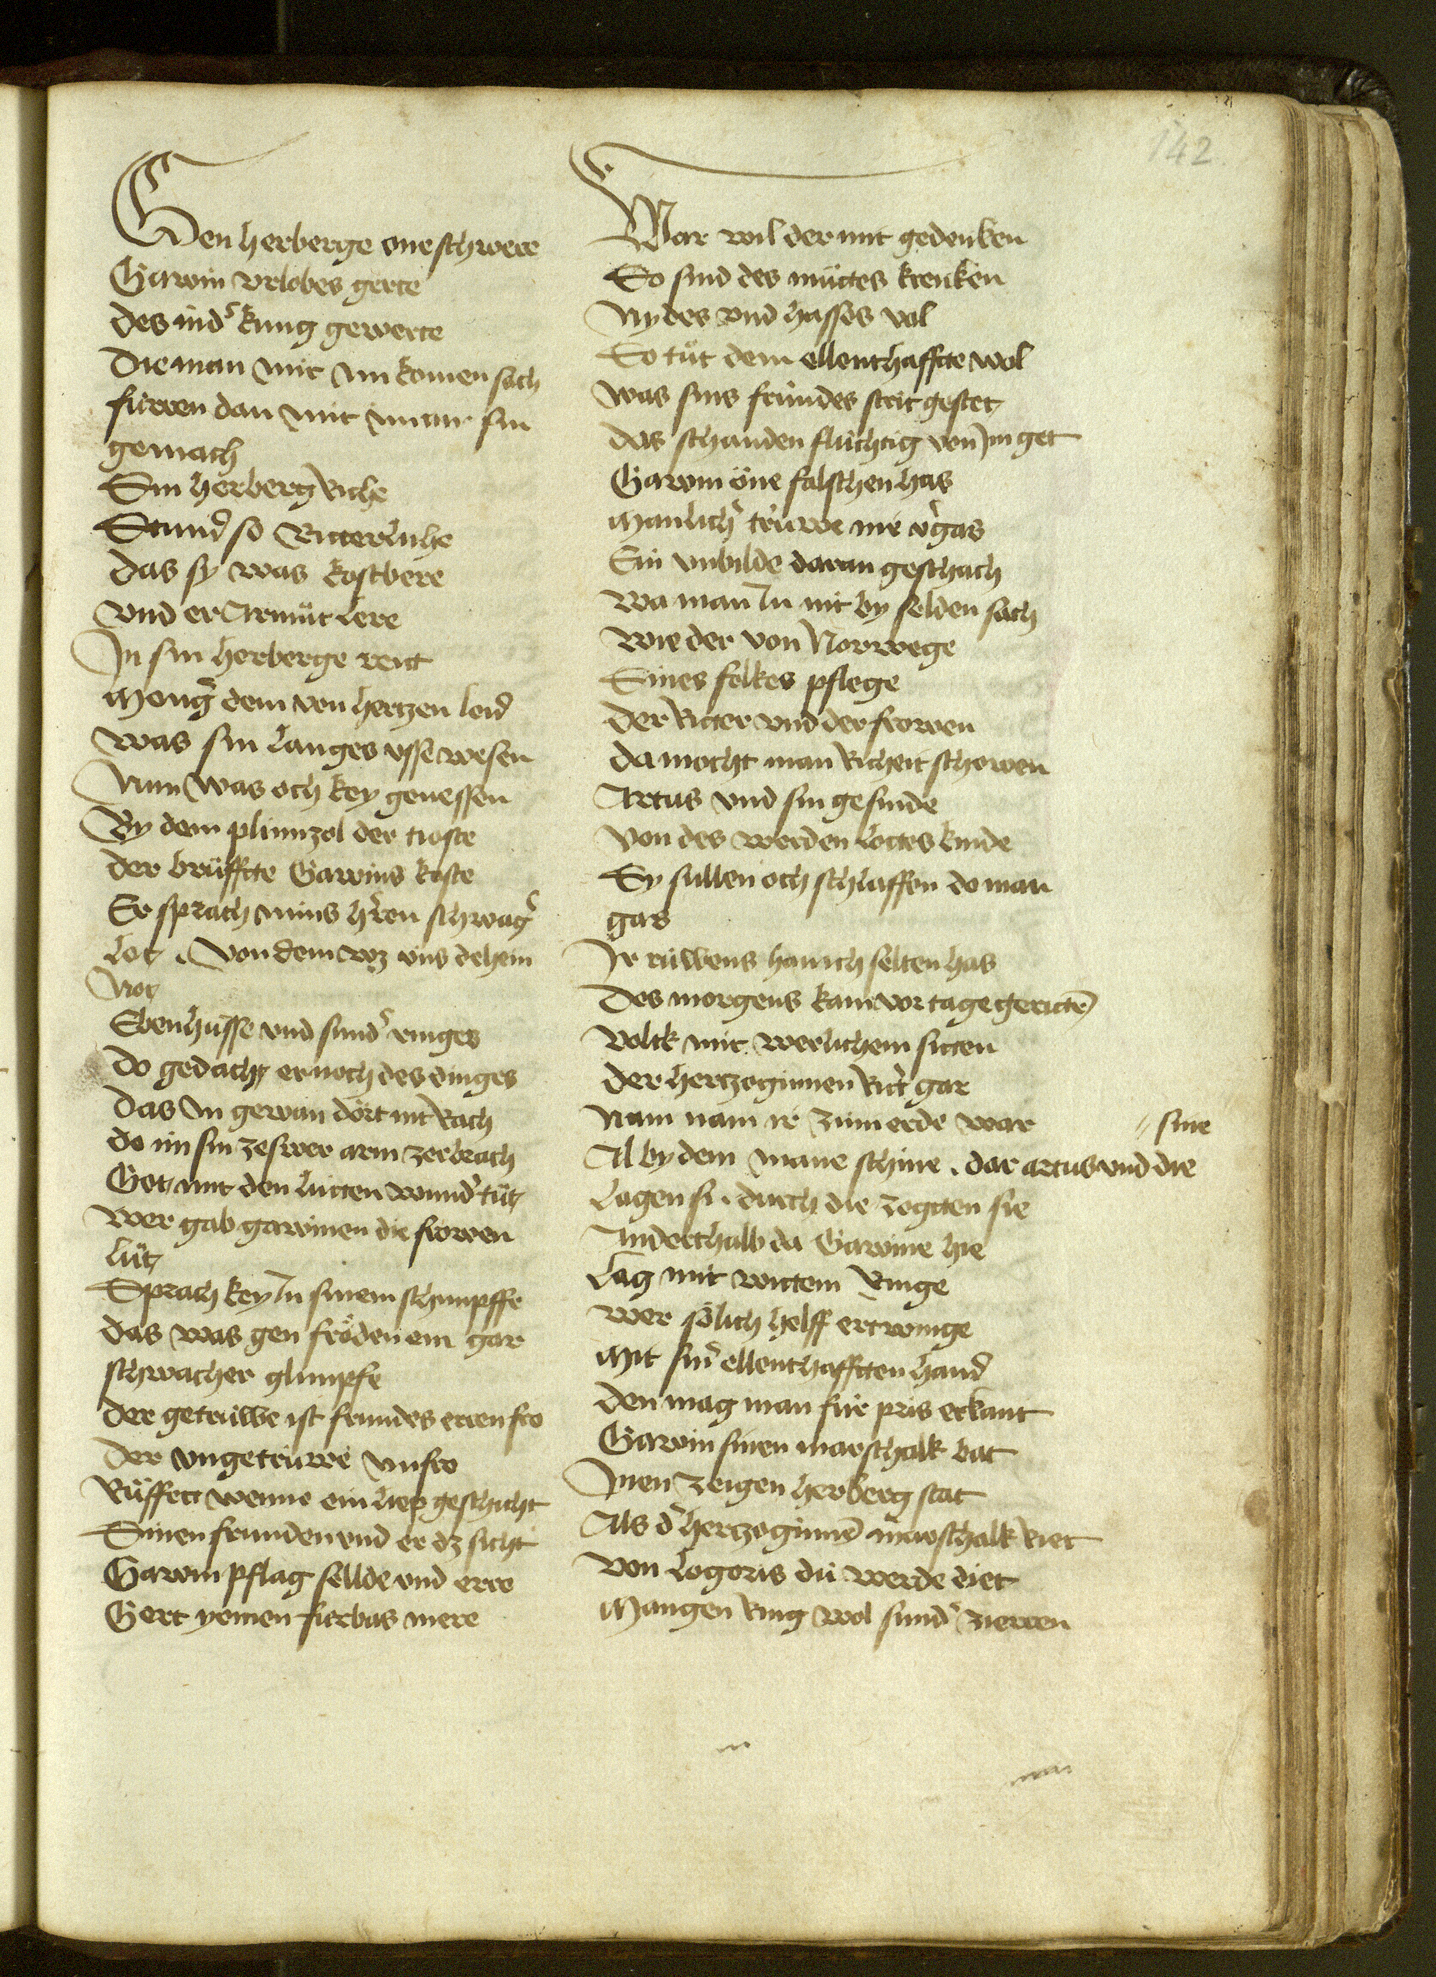 142
Gen herberge one schwere
Gawin vrlobes gerte
des in d' kung gewerte
Die man mit im komen sach
fürren dan mit im an sin
gemach
Sin herberg riche
Stund so Ritterliche
das sy was kostbere
vnd er Armuͤt lere
In sin herberge reit
Meng' dem von hertzen leid
was sin langes vsse wesen
Nun was och key genessen
By dem plimizol der tioste
der bruͤffte Gawins koste
Er sprach mins h'ren schwag'
Lot . Von dem wz vns dehein
Not
Ebenhusse vnd sund' ringes
Do gedacht er noch des dinges
das In gewan dört nit Rach
do im sin zeswer arm zerbrach
Got mit den lütten wund' tuͤt
wer gab gawinen die frowen
luͤt
Sprach key In sinem schimpffe
das was gen froͤden ein gar
schwacher glimpfe
der getruwe ist frundes erren fro
der vngetruwe vnfro
Ruͤffett wenne ein liep geschicht
Sinen frunden vnd er dz sicht
Gawin pflag sellde vnd erre
Gert yemen fürbas mere
War wil der mit gedenken
So sind des muͤttes krenken
Nydes vnd hasses vol
So tuͤt dem ellenthaffte wol
was sins frundes strit gestet
das schanden fluchtig von Im get
Gawin one falschen has
Manlich' truwe nie v'gas
Sin vnbilde daran geschach
wa man In nit by selden sach
wie der von Norwege
Sines folkes pflege
der Ritter vnd der frowen
da mocht man Richeit schowen
Artus vnd sin gesinde
Von des werden Lottes kinde
Sy sullen och schlaffen do man
gas
Ir ruwens han ich selten has
des morgens kam vor tage geritte͂
Volck mit werlichem sitten
der hertzoginnen Rit' gar
Nam nam ir zimierde war
sine
Al by dem mane schine . dar artus vnd die
Lagen si . durch die zogtten sie
Anderthalb da Gawine hie
Lag mit wittem Ringe
wer soͤlich helff ertwinge
Mit sin' ellenthafften hand
den mag man fur pris erkant
Gawin sinen marschalk bat
Inen zeigen herberg stat
Als d' hertzoginne͂ marschalk riet
Von Logoris dü werde diet
Mangen ring wol sund' zierren